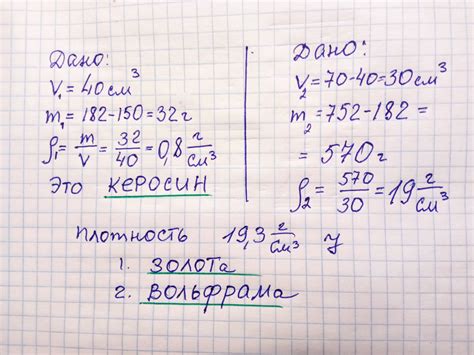 Дано:
V₁ = 40 см³
m₁ = 182-150 = 32 г
ρ₁ = m/V = 32/40 = 0,8 г/см³
Это КЕРОСИН
Дано:
V₂ = 70-40 = 30 см³
m₂ = 752-182 =
= 570 г
ρ₂ = 570/30 = 19 г/см³
ПЛОТНОСТЬ 19,3 г/см³ У
1. ЗОЛОТА
2. ВОЛЬФРАМА